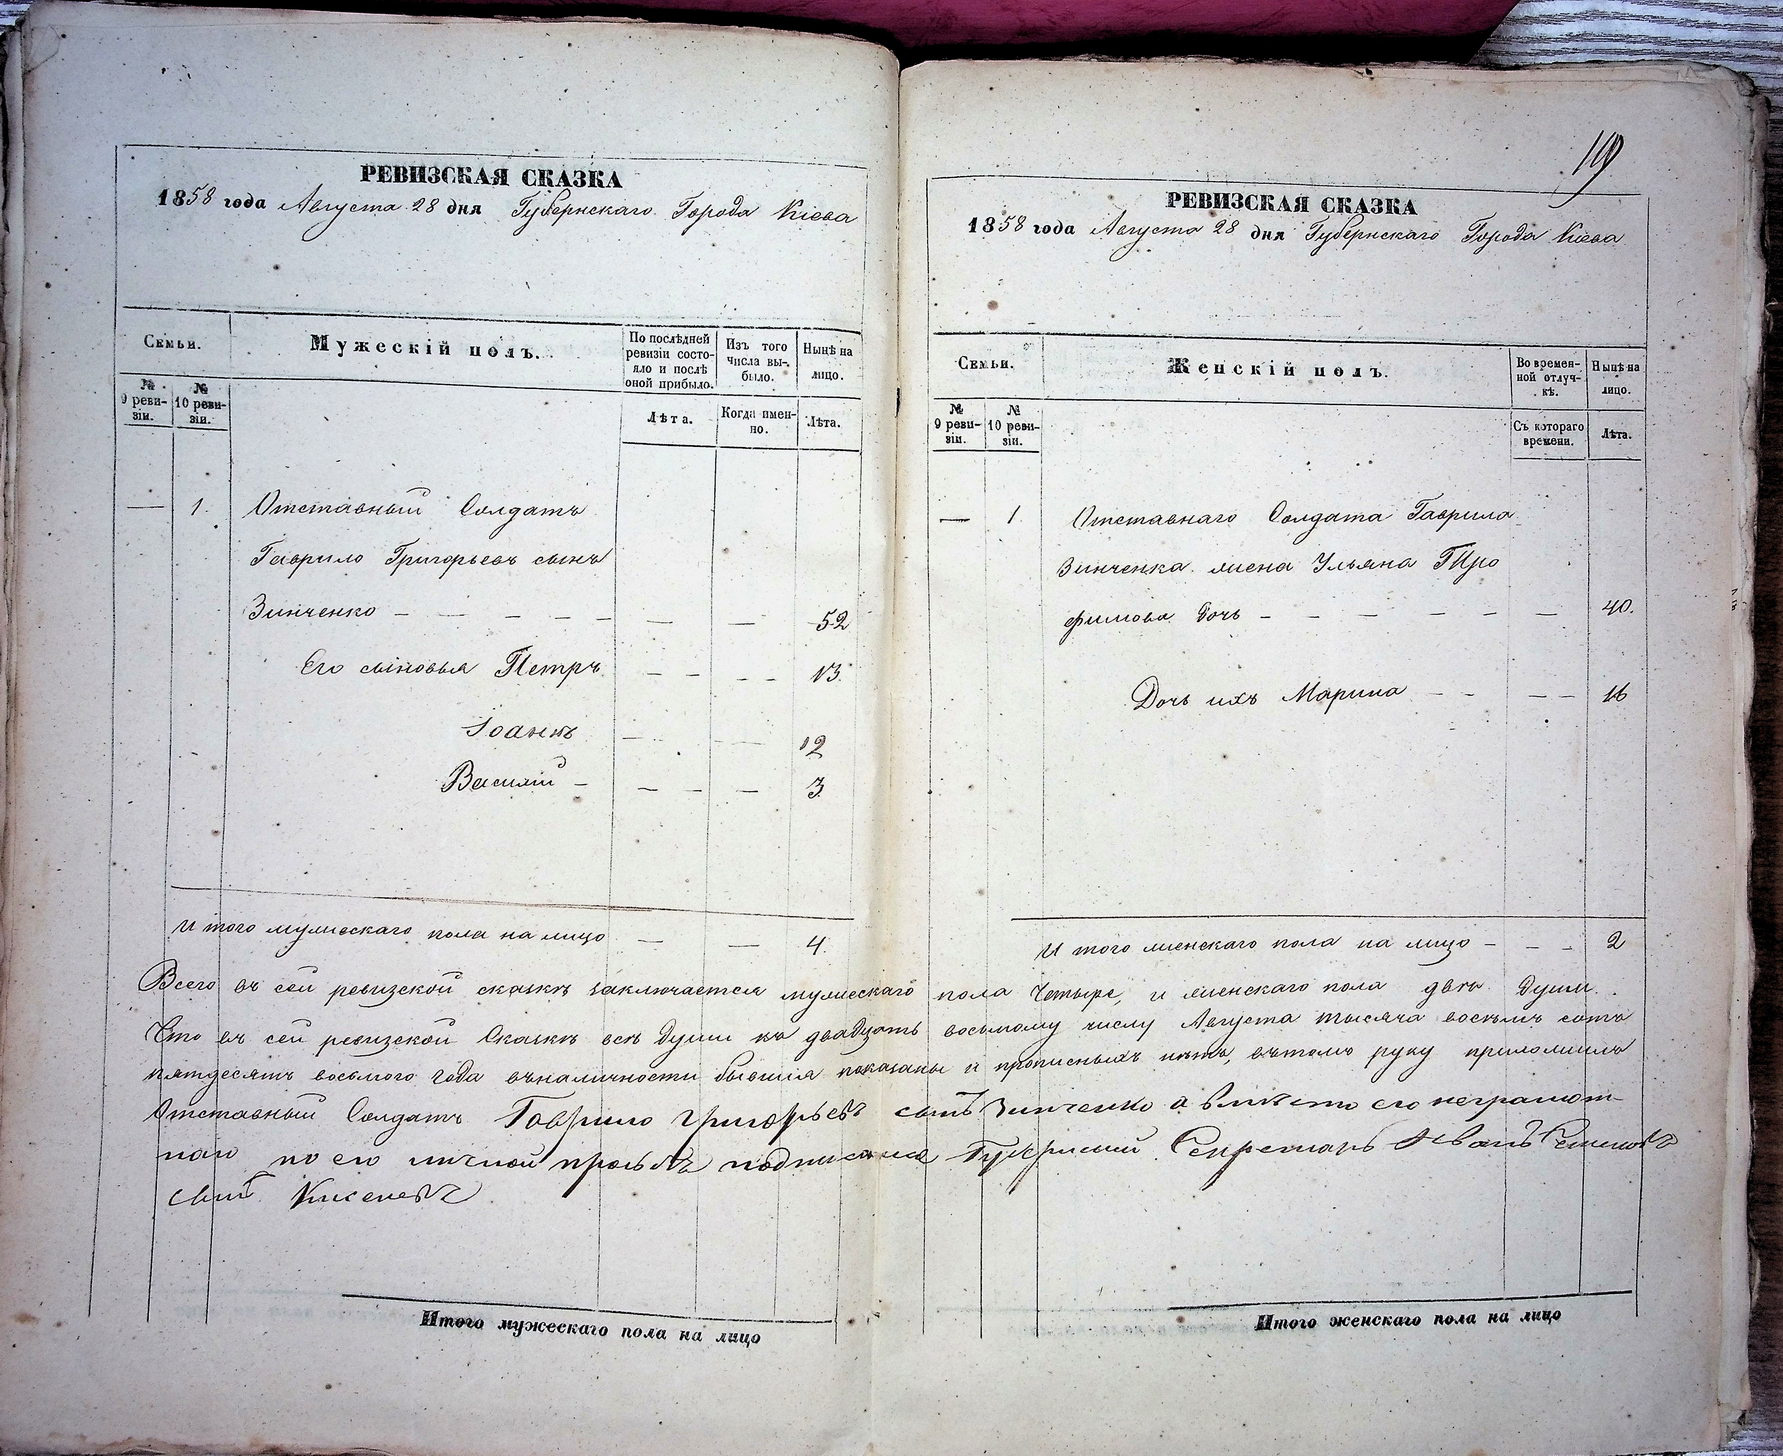 19
РЕВИЗСКАЯ СКАЗКА
1858 года Августа 28 дня Губернскаго Города Кіева
Семьи.
Мужескій полъ.
По послѣдней ревизіи состояло и послѣ оной прибыло.
Изъ того числа выбыло.
Нынѣ на лицо.
№ 9 ревизіи.
№ 10 ревизіи.
Лѣта.
Когда именно.
Лѣта.
— 1. Отставный Солдатъ
Гаврило Григорьевъ сынъ
Зинченко — — — — — — — 52
Его сыновья Петръ — — — — 13.
Іоаннъ — — 12
Василій — — — — 3
Итого мужескаго пола на лицо — — 4
РЕВИЗСКАЯ СКАЗКА
1858 года Августа 28 дня Губернскаго Города Кіева
Семьи.
Женскій полъ.
Во временной отлучкѣ.
Нынѣ на лицо.
№ 9 ревизіи.
№ 10 ревизіи.
Съ котораго времени.
Лѣта.
— 1 Отставнаго Солдата Гаврила
Зинченка жена Ульяна Тро
фимова Дочь — — — — — — — 40.
Дочь ихъ Марина — — — — 16
Итого женскаго пола на лицо — — — 2
Всего въ сей ревизской сказкѣ заключается мужескаго пола Четыре, и женскаго пола двѣ Души.
Что въ сей ревизской Сказкѣ всѣ Души къ двадцать восьмому числу Августа тысяча восемь сотъ
пятдесятъ восьмого года въ наличности бывшія показаны и прописныхъ нѣтъ, въ томъ руку приложилъ
Отставный Солдатъ Гаврило Григорьевъ сынъ Зинченко а вмѣсто его неграмот-
наго по его личной прозьбѣ подписался Губернскій Секретарь Иванъ Семеновъ
сынъ
Итого мужескаго пола на лицо
Итого женскаго пола на лицо